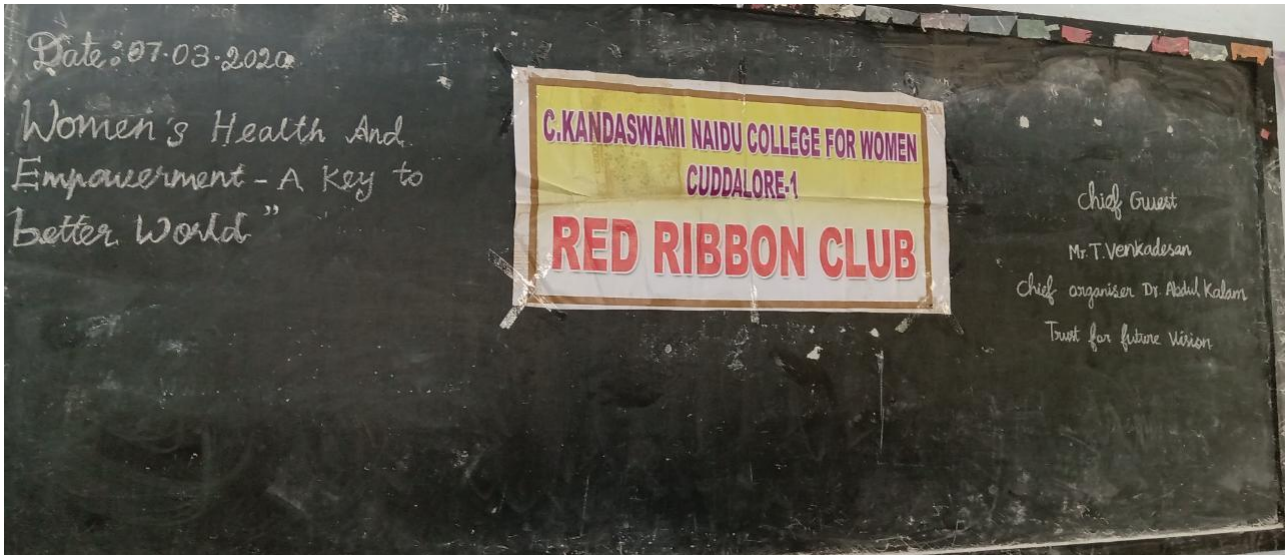 Date: 07.03.2020
Women's Health And
Empowerment - A Key to
better World"
C.KANDASWAMI NAIDU COLLEGE FOR WOMEN
CUDDALORE-1
RED RIBBON CLUB
Chief Guest
Mr. T. Venkadesan
Chief organiser Dr. Abdul Kalam
Trust for future Vision